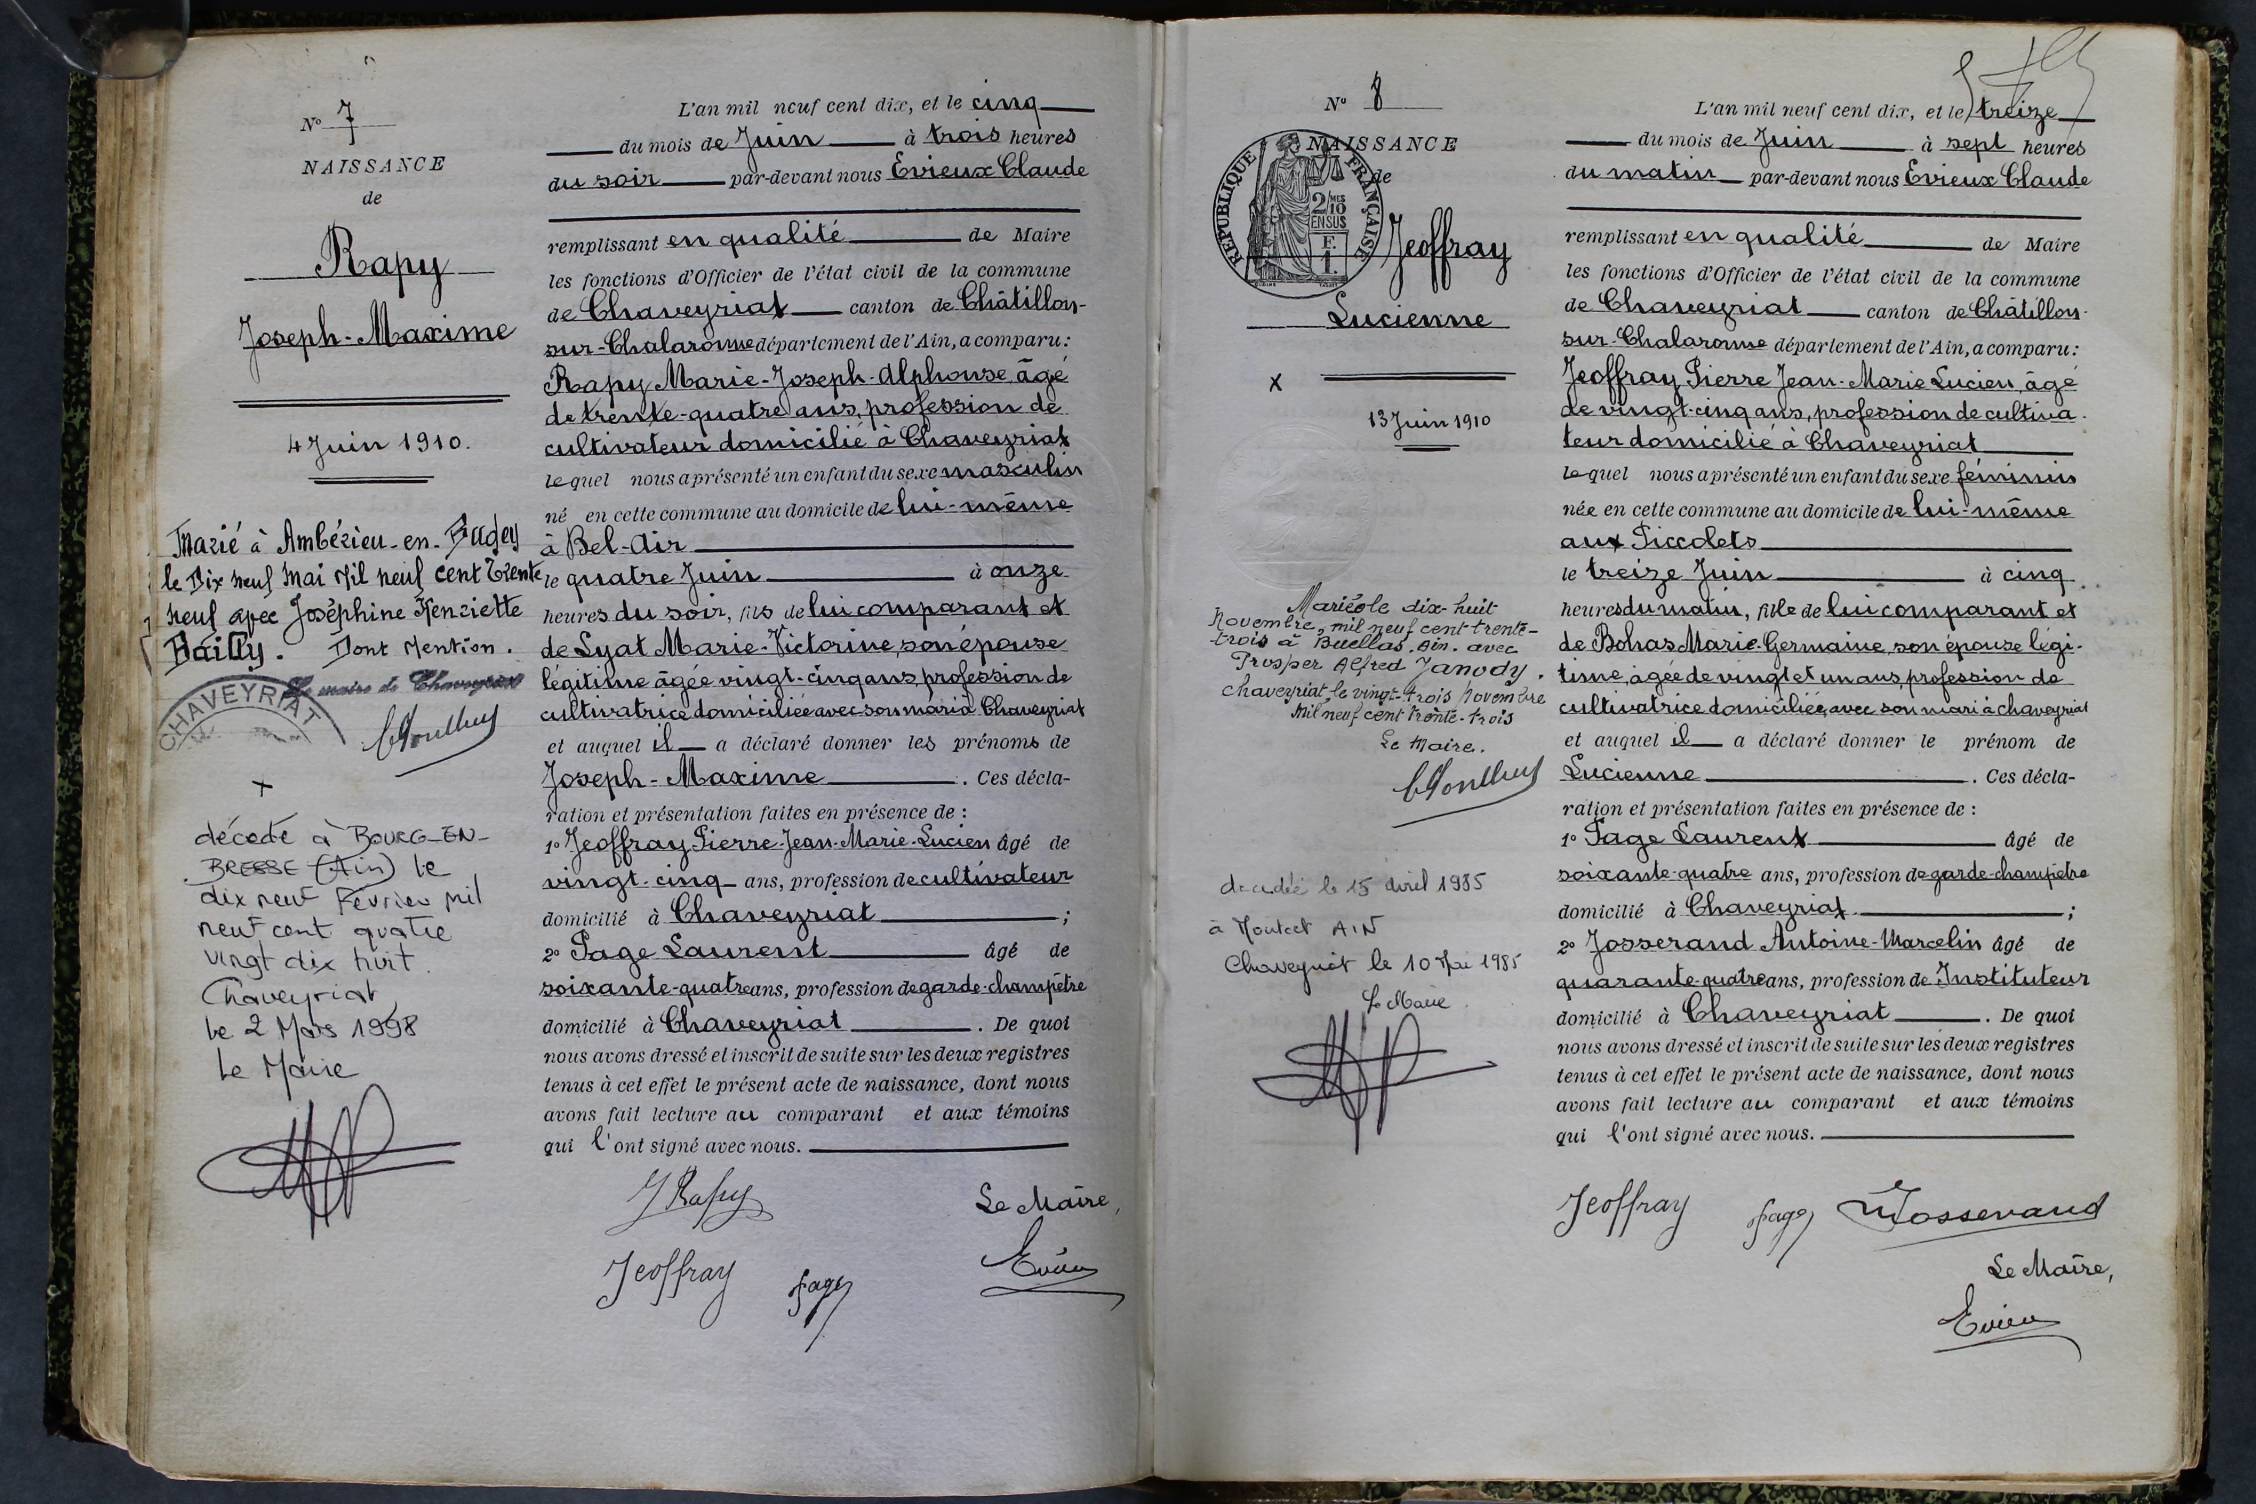 N° 7
NAISSANCE
de
Rapy
Joseph-Maxime
4 Juin 1910.
Marié à Ambérieu-en-Bugey
le Dix neuf Mai Mil neuf cent Trente
neuf avec Joséphine Henriette
Bailly. Dont Mention.
Le maire de Chaveyriat
CHAVEYRIAT
+
décédé à BOURG-EN-
BRESSE (Ain) le
dix neuf Février mil
neuf cent quatre
vingt dix huit.
Chaveyriat,
le 2 Mars 1998
Le Maire
L'an mil neuf cent dix, et le cinq
du mois de Juin à trois heures
du soir par-devant nous Evieux Claude
remplissant en qualité de Maire
les fonctions d'Officier de l'état civil de la commune
de Chaveyriat canton de Châtillon-
sur-Chalaronne département de l'Ain, a comparu:
Rapy Marie-Joseph-Alphonse, âgé
de trente-quatre ans, profession de
cultivateur domicilié à Chaveyriat
lequel nous a présenté un enfant du sexe masculin
né en cette commune au domicile de lui-même
à Bel-Air
le quatre Juin à onze
heures du soir, fils de lui comparant et
de Lyat Marie-Victorine, son épouse
légitime âgée vingt-cinq ans, profession de
cultivatrice domiciliée avec son mari à Chaveyriat
et auquel il a déclaré donner les prénoms de
Joseph-Maxime. Ces décla-
ration et présentation faites en présence de :
1° Jeoffray Pierre-Jean-Marie-Lucien âgé de
vingt-cinq ans, profession de cultivateur
domicilié à Chaveyriat ;
2° Page Laurent âgé de
soixante-quatre ans, profession de garde-champêtre
domicilié à Chaveyriat. De quoi
nous avons dressé et inscrit de suite sur les deux registres
tenus à cet effet le présent acte de naissance, dont nous
avons fait lecture au comparant et aux témoins
qui l'ont signé avec nous.
J Rapy
Le Maire,
Jeoffray Page Evieux
N° 8
NAISSANCE
de
REPUBLIQUE FRANÇAISE
2/10 MES
EN SUS
F.
1.
Jeoffray
Lucienne
x
13 Juin 1910
Mariée le dix-huit
novembre, mil neuf cent trente-
trois à Buellas, Ain. avec
Prosper Alfred Janody.
Chaveyriat, le vingt-trois novembre
mil neuf cent trente-trois
Le Maire.
décédée le 15 avril 1985
à Montcet AIN
Chaveyriat le 10 Mai 1985
Le Maire
L'an mil neuf cent dix, et le treize
du mois de Juin à sept heures
du matin par-devant nous Evieux Claude
remplissant en qualité de Maire
les fonctions d'Officier de l'état civil de la commune
de Chaveyriat canton de Châtillon-
sur-Chalaronne département de l'Ain, a comparu:
Jeoffray Pierre Jean-Marie Lucien, âgé
de vingt-cinq ans, profession de cultiva-
teur domicilié à Chaveyriat
lequel nous a présenté un enfant du sexe féminin
née en cette commune au domicile de lui-même
aux Piccolets
le treize Juin à cinq
heures du matin, fille de lui comparant et
de Bohas Marie-Germaine, son épouse légi-
time, âgée de vingt et un ans, profession de
cultivatrice domiciliée, avec son mari à Chaveyriat
et auquel il a déclaré donner le prénom de
Lucienne. Ces décla-
ration et présentation faites en présence de :
1° Page Laurent âgé de
soixante-quatre ans, profession de garde-champêtre
domicilié à Chaveyriat. ;
2° Josserand Antoine-Marcelin âgé de
quarante-quatre ans, profession de Instituteur
domicilié à Chaveyriat. De quoi
nous avons dressé et inscrit de suite sur les deux registres
tenus à cet effet le présent acte de naissance, dont nous
avons fait lecture au comparant et aux témoins
qui l'ont signé avec nous.
Jeoffray Page Josserand
Le Maire,
Evieux